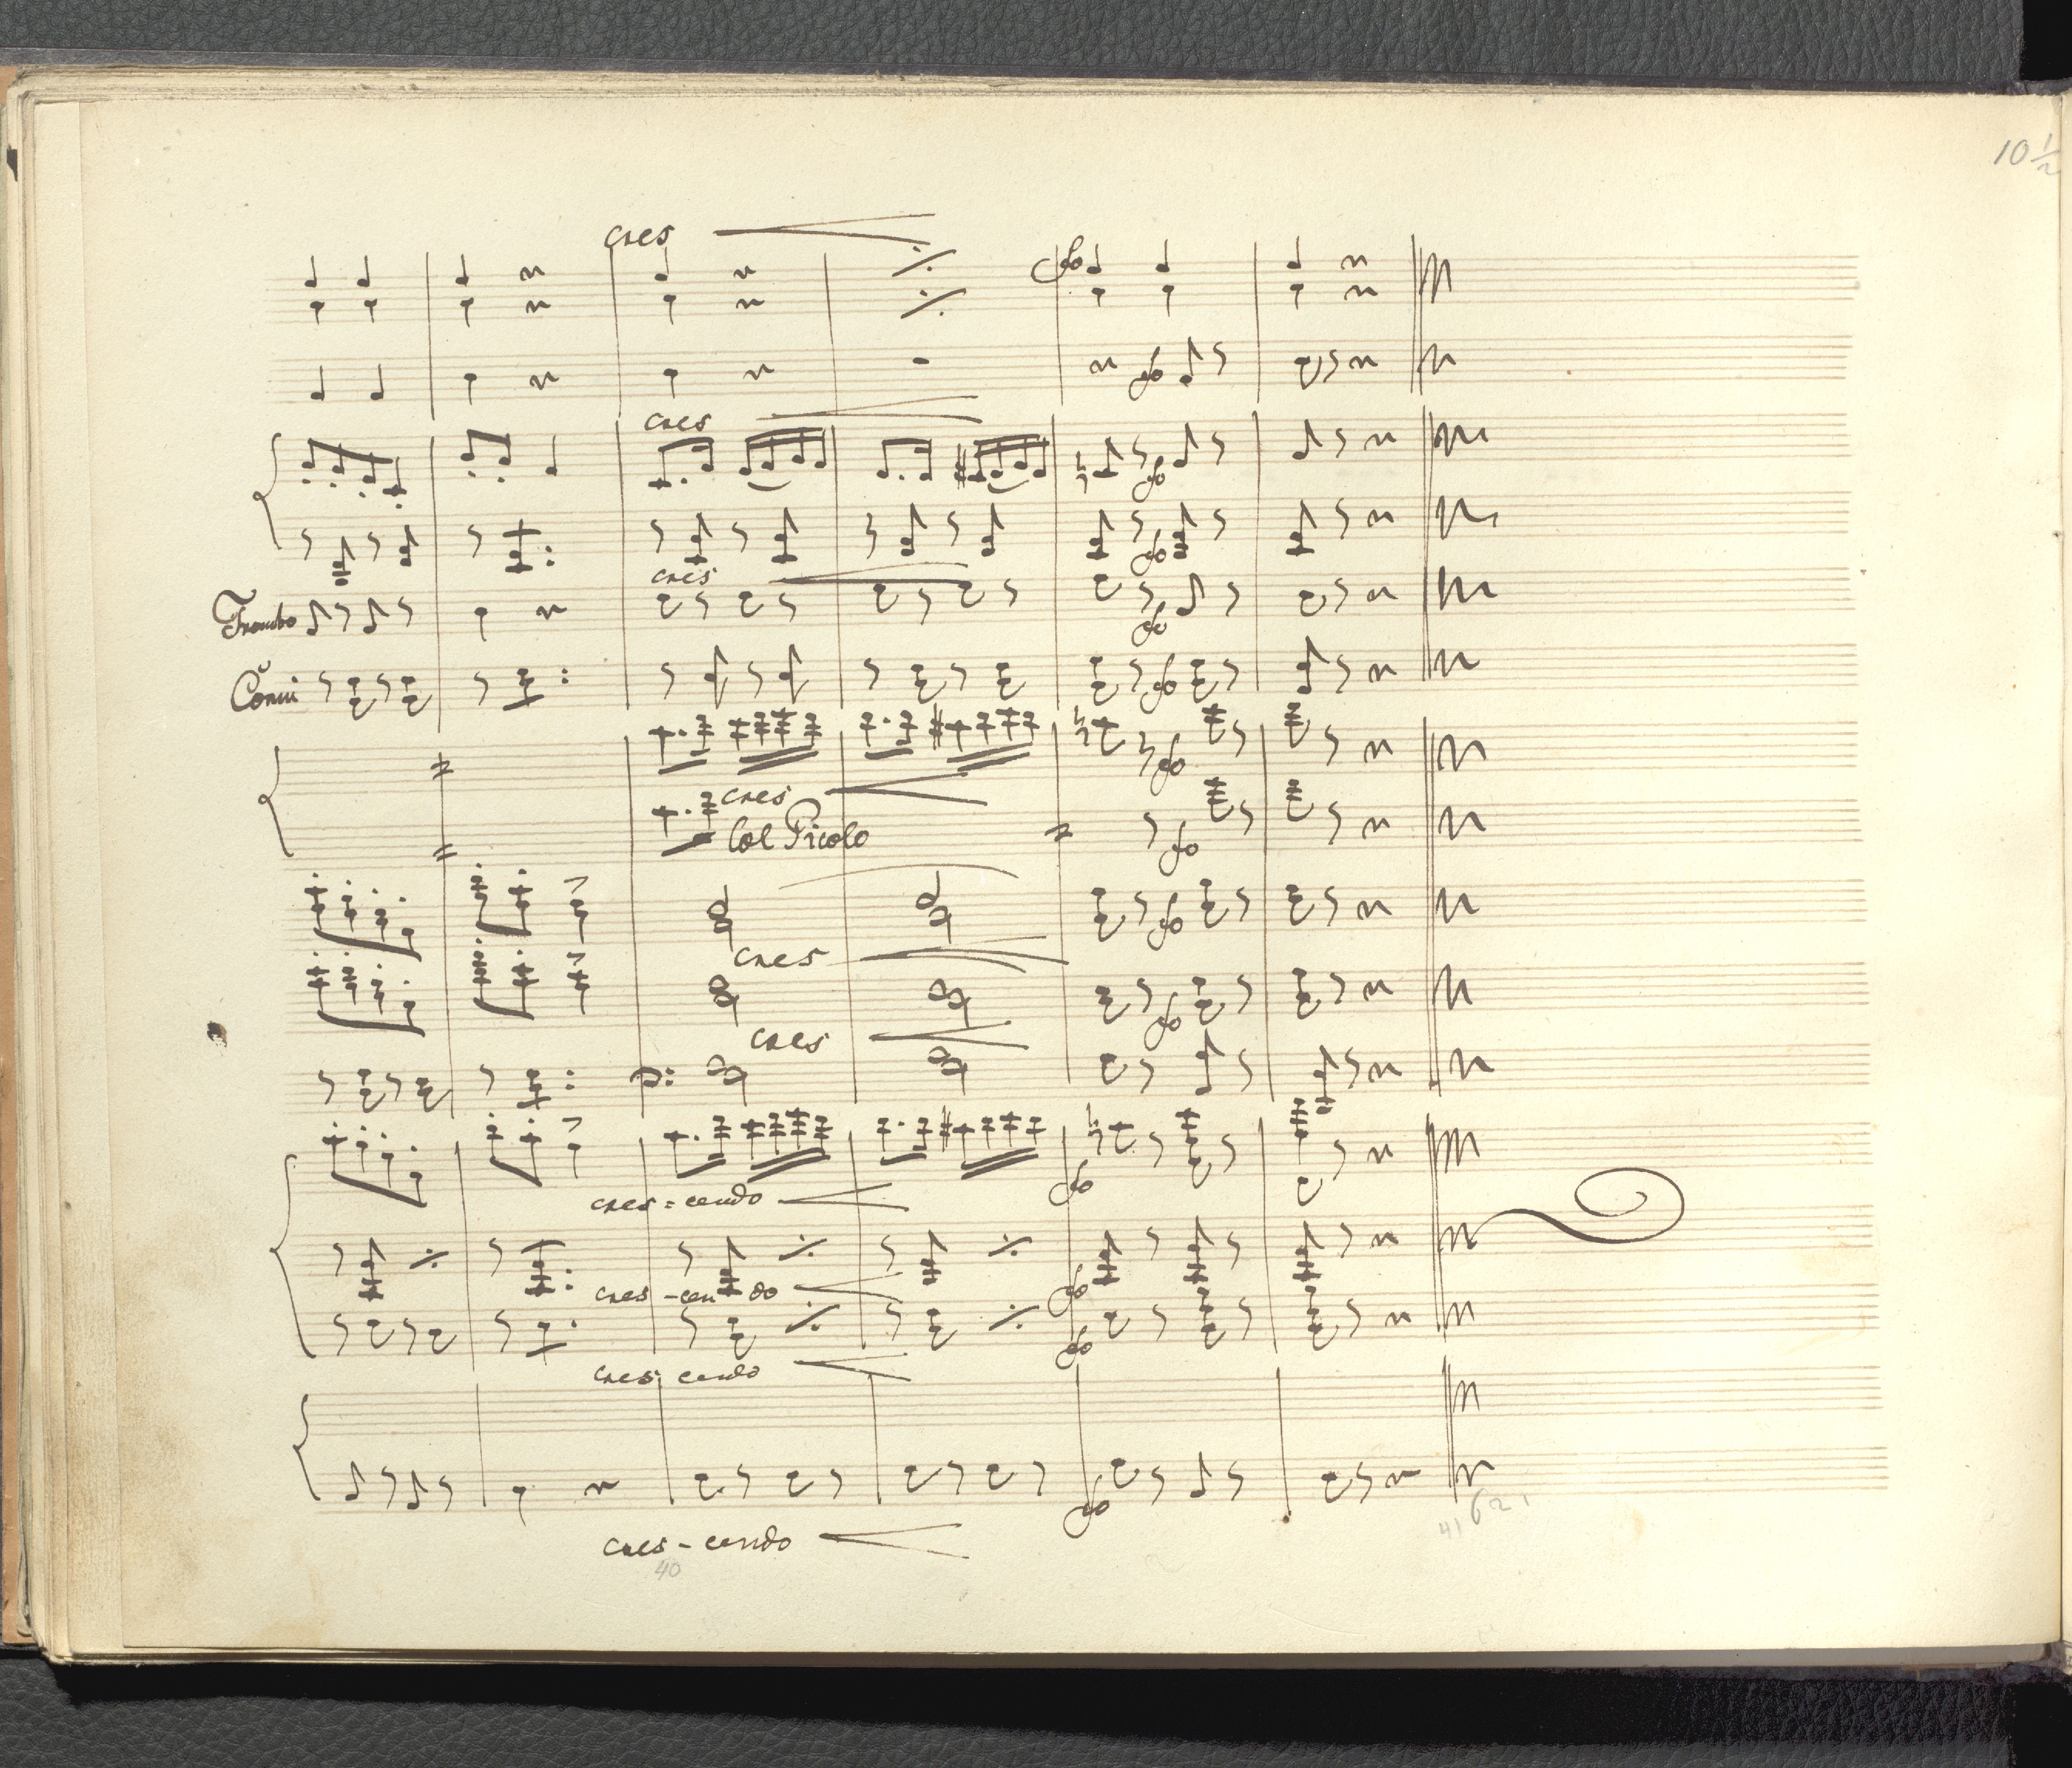 10 1/2
cres
fo
fo
cres
fo
fo
cres
Trombo
fo
Corni
fo
fo
cres
Col Picolo
fo
fo
cres
fo
cres
cres=cendo
fo
cres-cen do
fo
fo
cres cendo
fo
62
41
cres-cendo
40